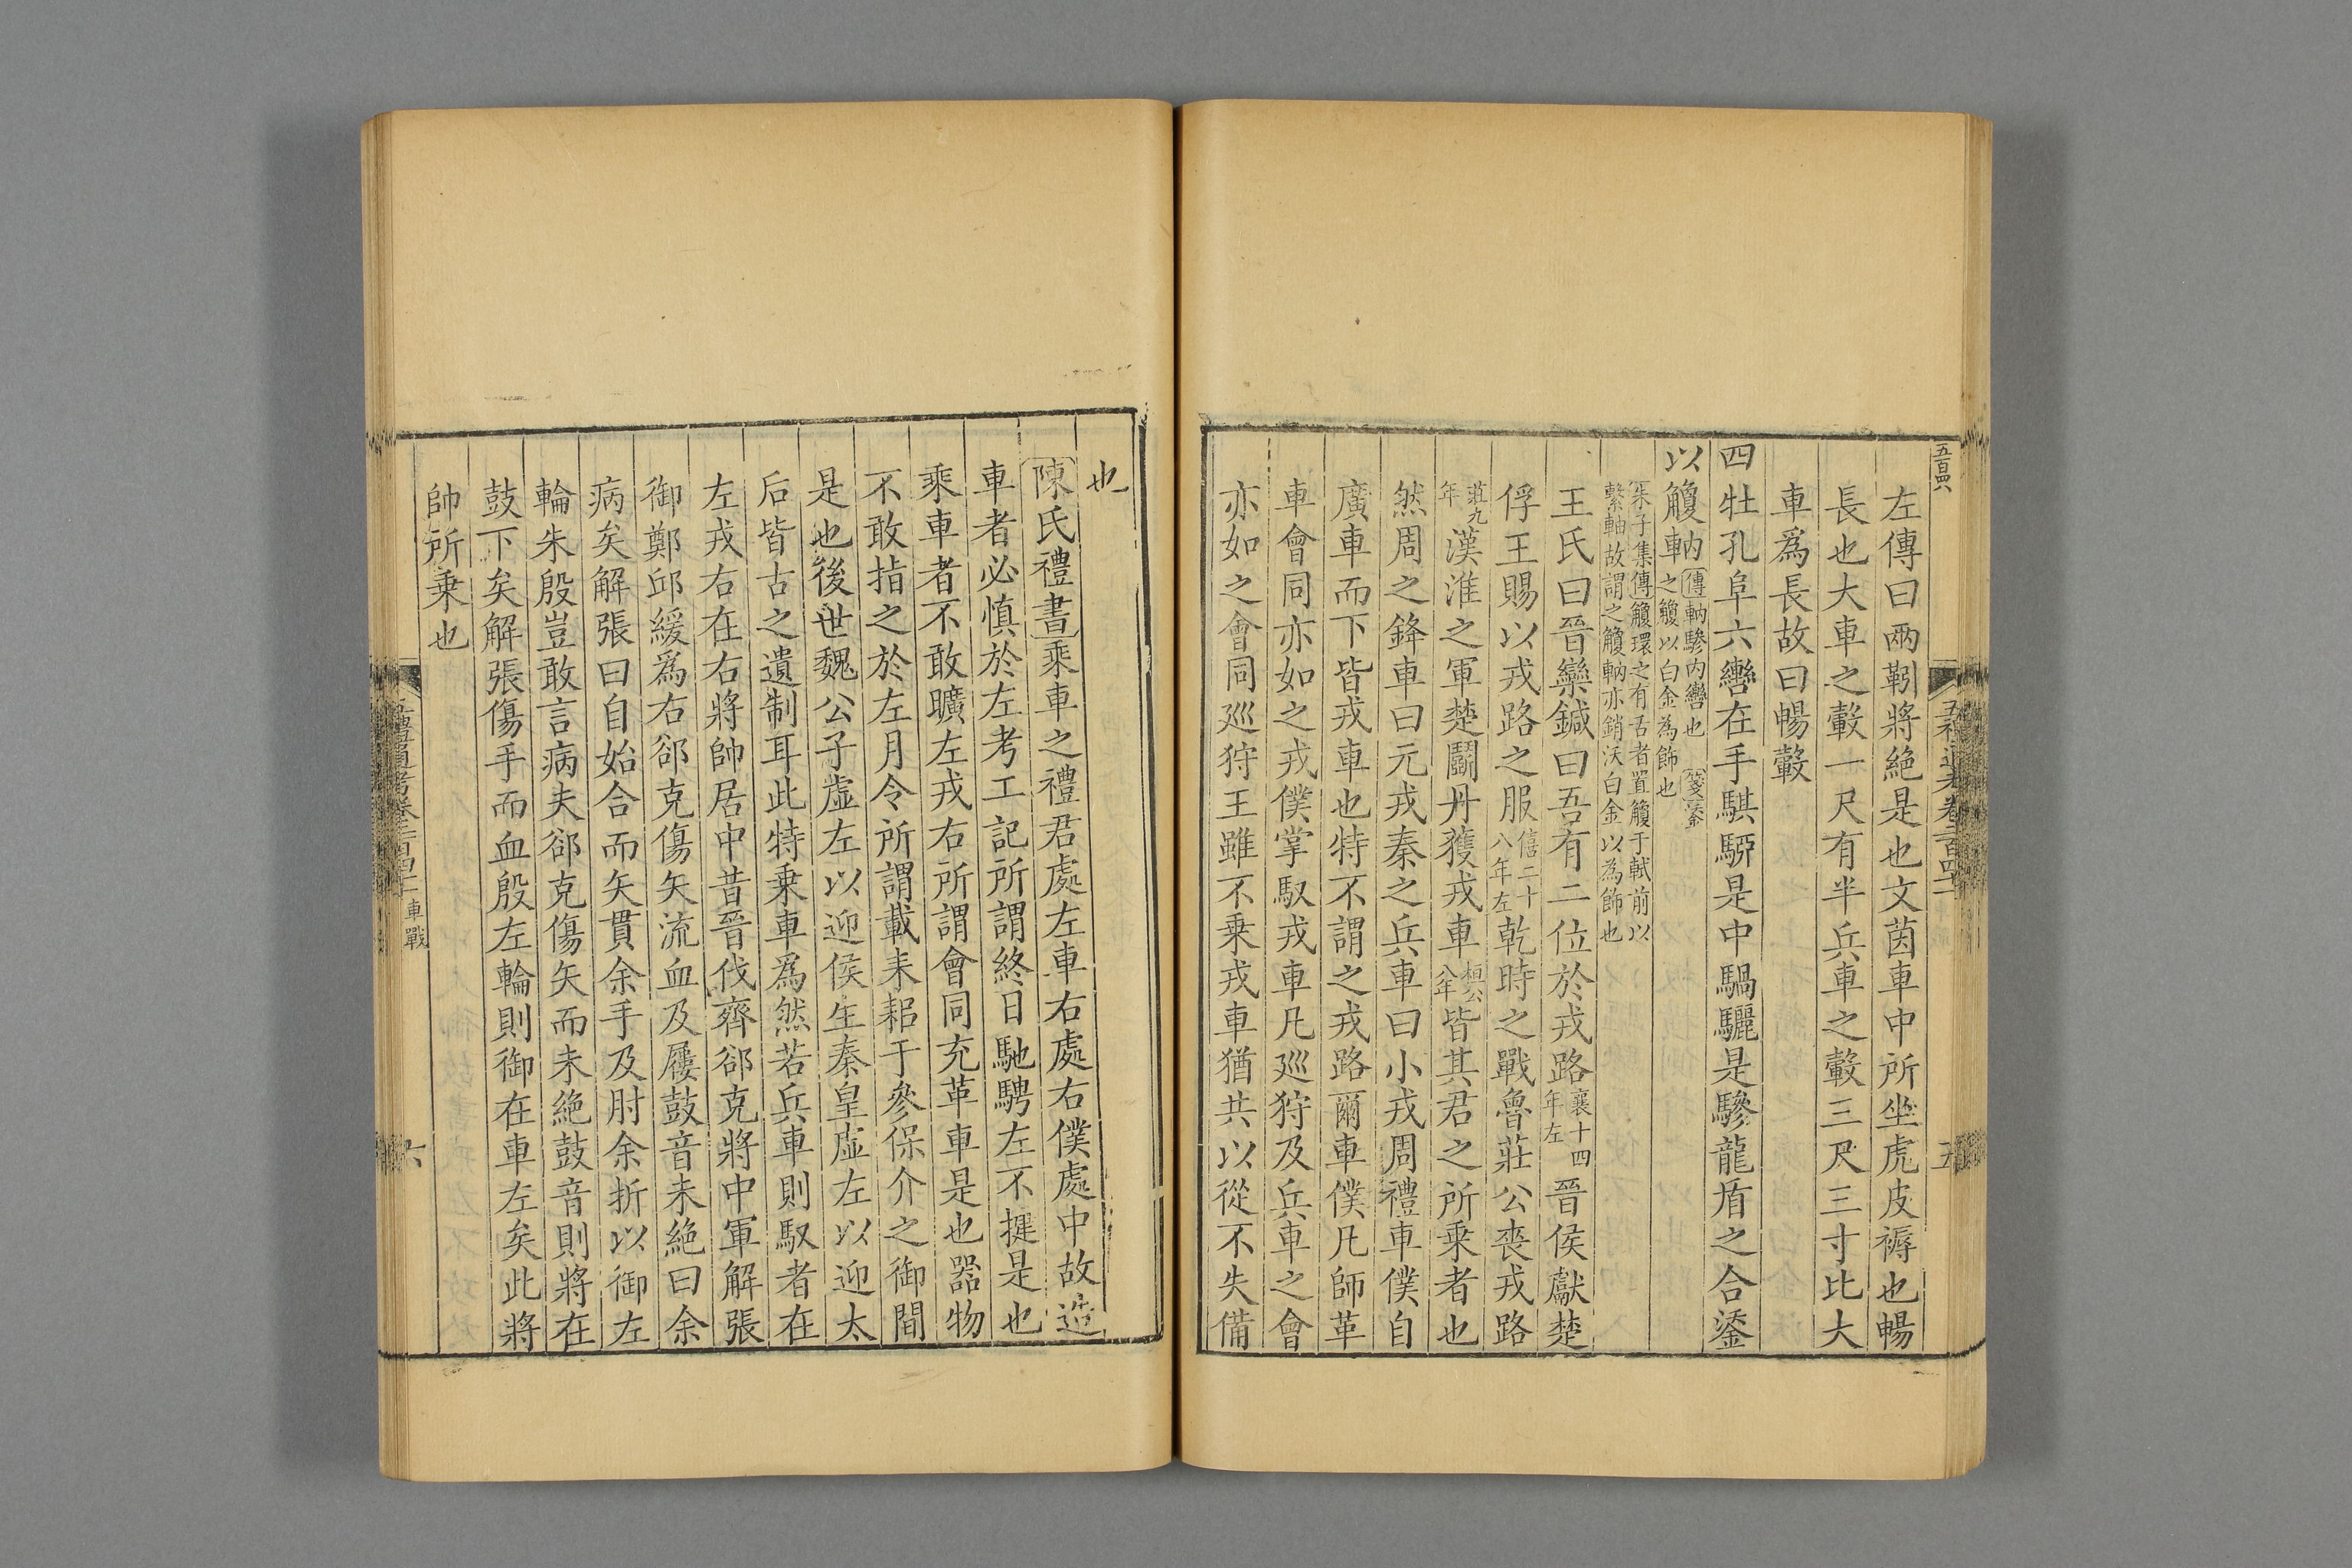 五百四六
左傳曰兩靷將絕是也文茵車中所坐虎皮褥也暢
長也大車之轂一尺有半兵車之轂三尺三寸比大
車爲長故曰暢轂
四牡孔阜六轡在手騏駵是中騧驪是驂龍盾之合鋈
以觼軜傳軜驂内轡也 箋鋈
之觼以白金為飾也
朱子集傳觼環之有舌者置觼于軾前以
繫軜故謂之觼軜亦銷沃白金以為飾也
王氏曰晉欒鍼曰吾有二位於戎路襄十四年左晉侯獻楚
俘王賜以戎路之服僖二十八年左乾時之戰魯莊公喪戎路
莊九年漢淮之軍楚鬭丹獲戎車桓公八年皆其君之所乗者也
然周之鋒車曰元戎秦之兵車曰小戎周禮車僕自
廣車而下皆戎車也特不謂之戎路爾車僕凡師革
車會同亦如之戎僕掌馭戎車凡巡狩及兵車之會
亦如之會同巡狩王雖不乗戎車猶共以從不失備
也
陳氏禮書乘車之禮君處左車右處右僕處中故造
車者必慎於左考工記所謂終日馳騁左不楗是也
乘車者不敢曠左戎右所謂會同充革車是也器物
不敢指之於左月令所謂載耒耜于參保介之御間
是也後世魏公子虛左以迎侯生秦皇虛左以迎太
后皆古之遺制耳此特乗車爲然若兵車則馭者在
左戎右在右將帥居中昔晉伐齊郤克將中軍解張
御鄭邱緩爲右郤克傷矢流血及屨鼓音未絕曰余
病矣解張曰自始合而矢貫余手及肘余折以御左
輪朱殷豈敢言病夫郤克傷矢而未絕鼓音則將在
鼓下矣解張傷手而血殷左輪則御在車左矣此將
帥所乗也
車戰
六